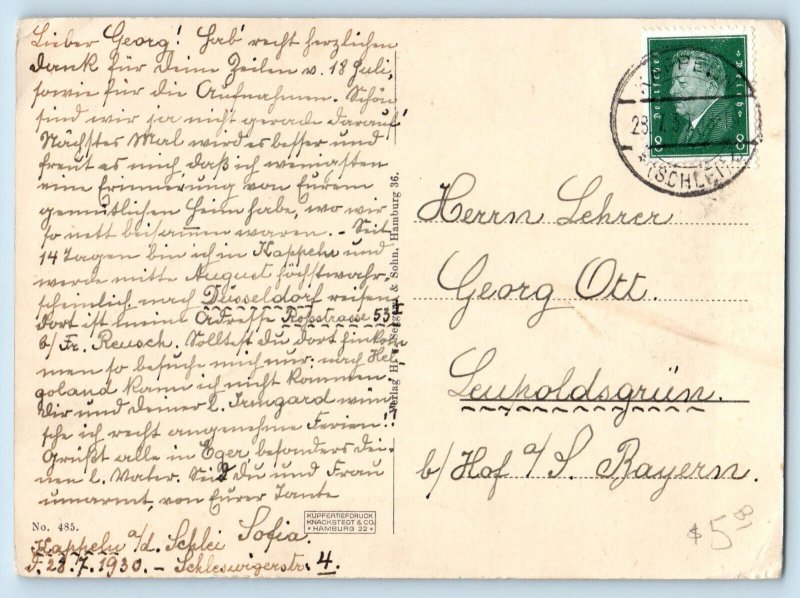 Lieber Georg! Hab' recht herzlichen
Dank für Deine Zeilen v. 18 Juli,
sowie für die Aufnahmen. Schön
sind wir ja nicht gerade darauf!
Nächstes Mal wird es besser und
freut es mich, daß ich wenigstens
eine Erinnerung von Eurem
gemütlichen Heim habe, wo wir
so nett beisammen waren. – Seit
14 Tagen bin ich in Kappeln und
werde mitte August höchstwahr-
scheinlich nach Düsseldorf reisen,
dort ist meine Adresse Roßstrasse 53 I
b/ Fr. Reusch. Solltest du dort hinkom
men so besuche mich nur: nach Hel
goland kann ich nicht kommen.
Dir und deiner l. Irmgard wün
sche ich recht angenehme Ferien!
Grüßt alle in Eger, besonders dei-
nen l. Vater. Seid du und Frau
umarmt, von Eurer Tante
Sofia.
Kappeln a/d. Schlei
23.7.1930. – Schleswigerstr. 4.
No. 485.
KUPFERTIEFDRUCK
KNACKSTEDT & CO.
* HAMBURG 22 *
& Sohn, Hamburg 36.
Verlag
(SCHLEI)
8 8
Herrn Lehrer
Georg Ott.
Leupoldsgrün.
b/ Hof a/S. Bayern.
$5.00